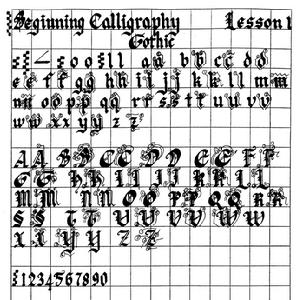 Beginning Calligraphy Lesson 1
Gothic
a a b b c c d d
e e f f g g h h i i j j k k l l m m
n n o o p p q q r r s s t t u u v v
w w x x y y z z
A A B B C C D D E E F F
G G H H I I J J K K L L
M M N N O O P P Q Q R R
S S T T U U V V W W
X X Y Y Z Z
1 2 3 4 5 6 7 8 9 0